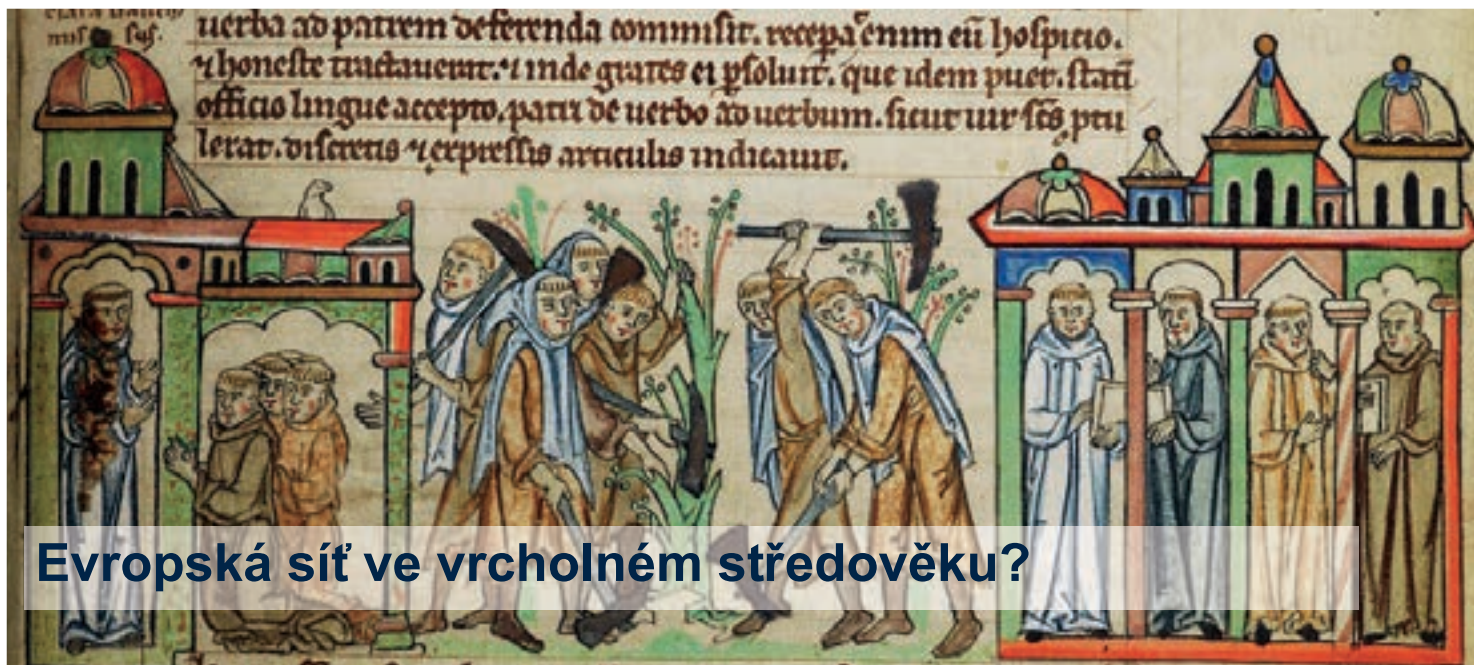 nus sus.
uerba ad patrem deferenda commisit. recepa enim eū hospicio.
⁊ honeste tractauerat. ⁊ inde grates ei psoluit. que idem puer. stati
officio lingue accepto. patri de uerbo ad uerbum. sicut uir scs ptu
lerat. discretis ⁊ expressis articulis indicauit.
Evropská síť ve vrcholném středověku?